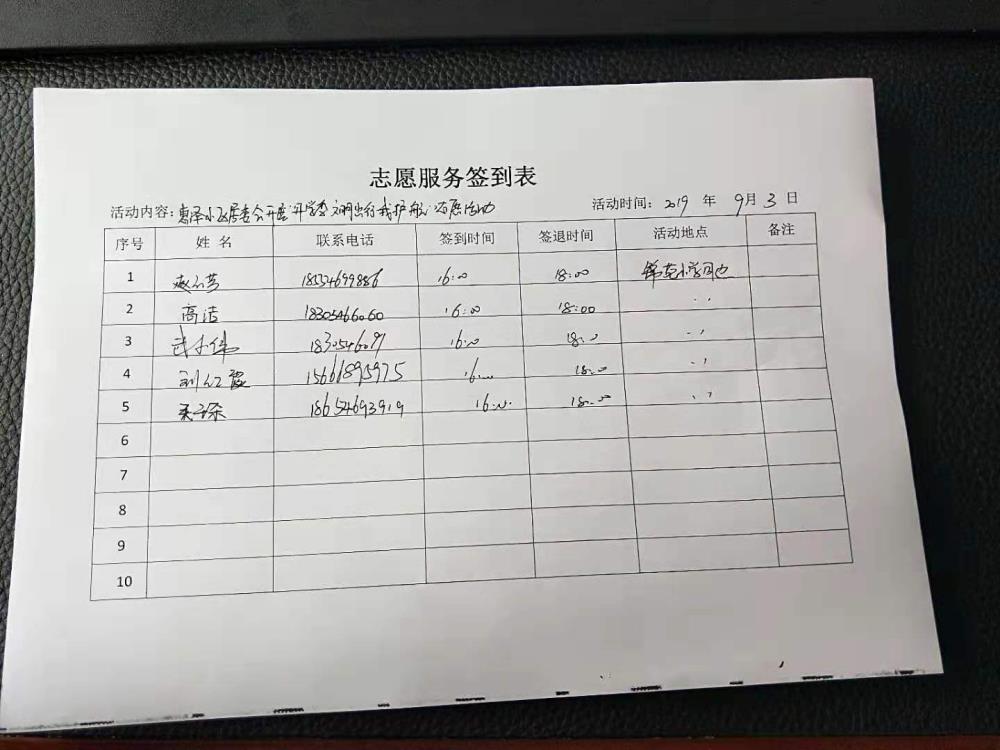 志愿服务签到表
活动内容：惠泽小区居委会开展"开学季文明出行我护航"志愿活动 活动时间：2019 年 9月 3 日
序号 姓名 联系电话 签到时间 签退时间 活动地点 备注
1 16:00 18:00
2 高洁 18305466060 16:00 18:00 〃
3 16:00 18:00 〃
4 刘红霞 15661895975 16:00 18:00 〃
5 18654693919 16:00 18:00 〃
6
7
8
9
10